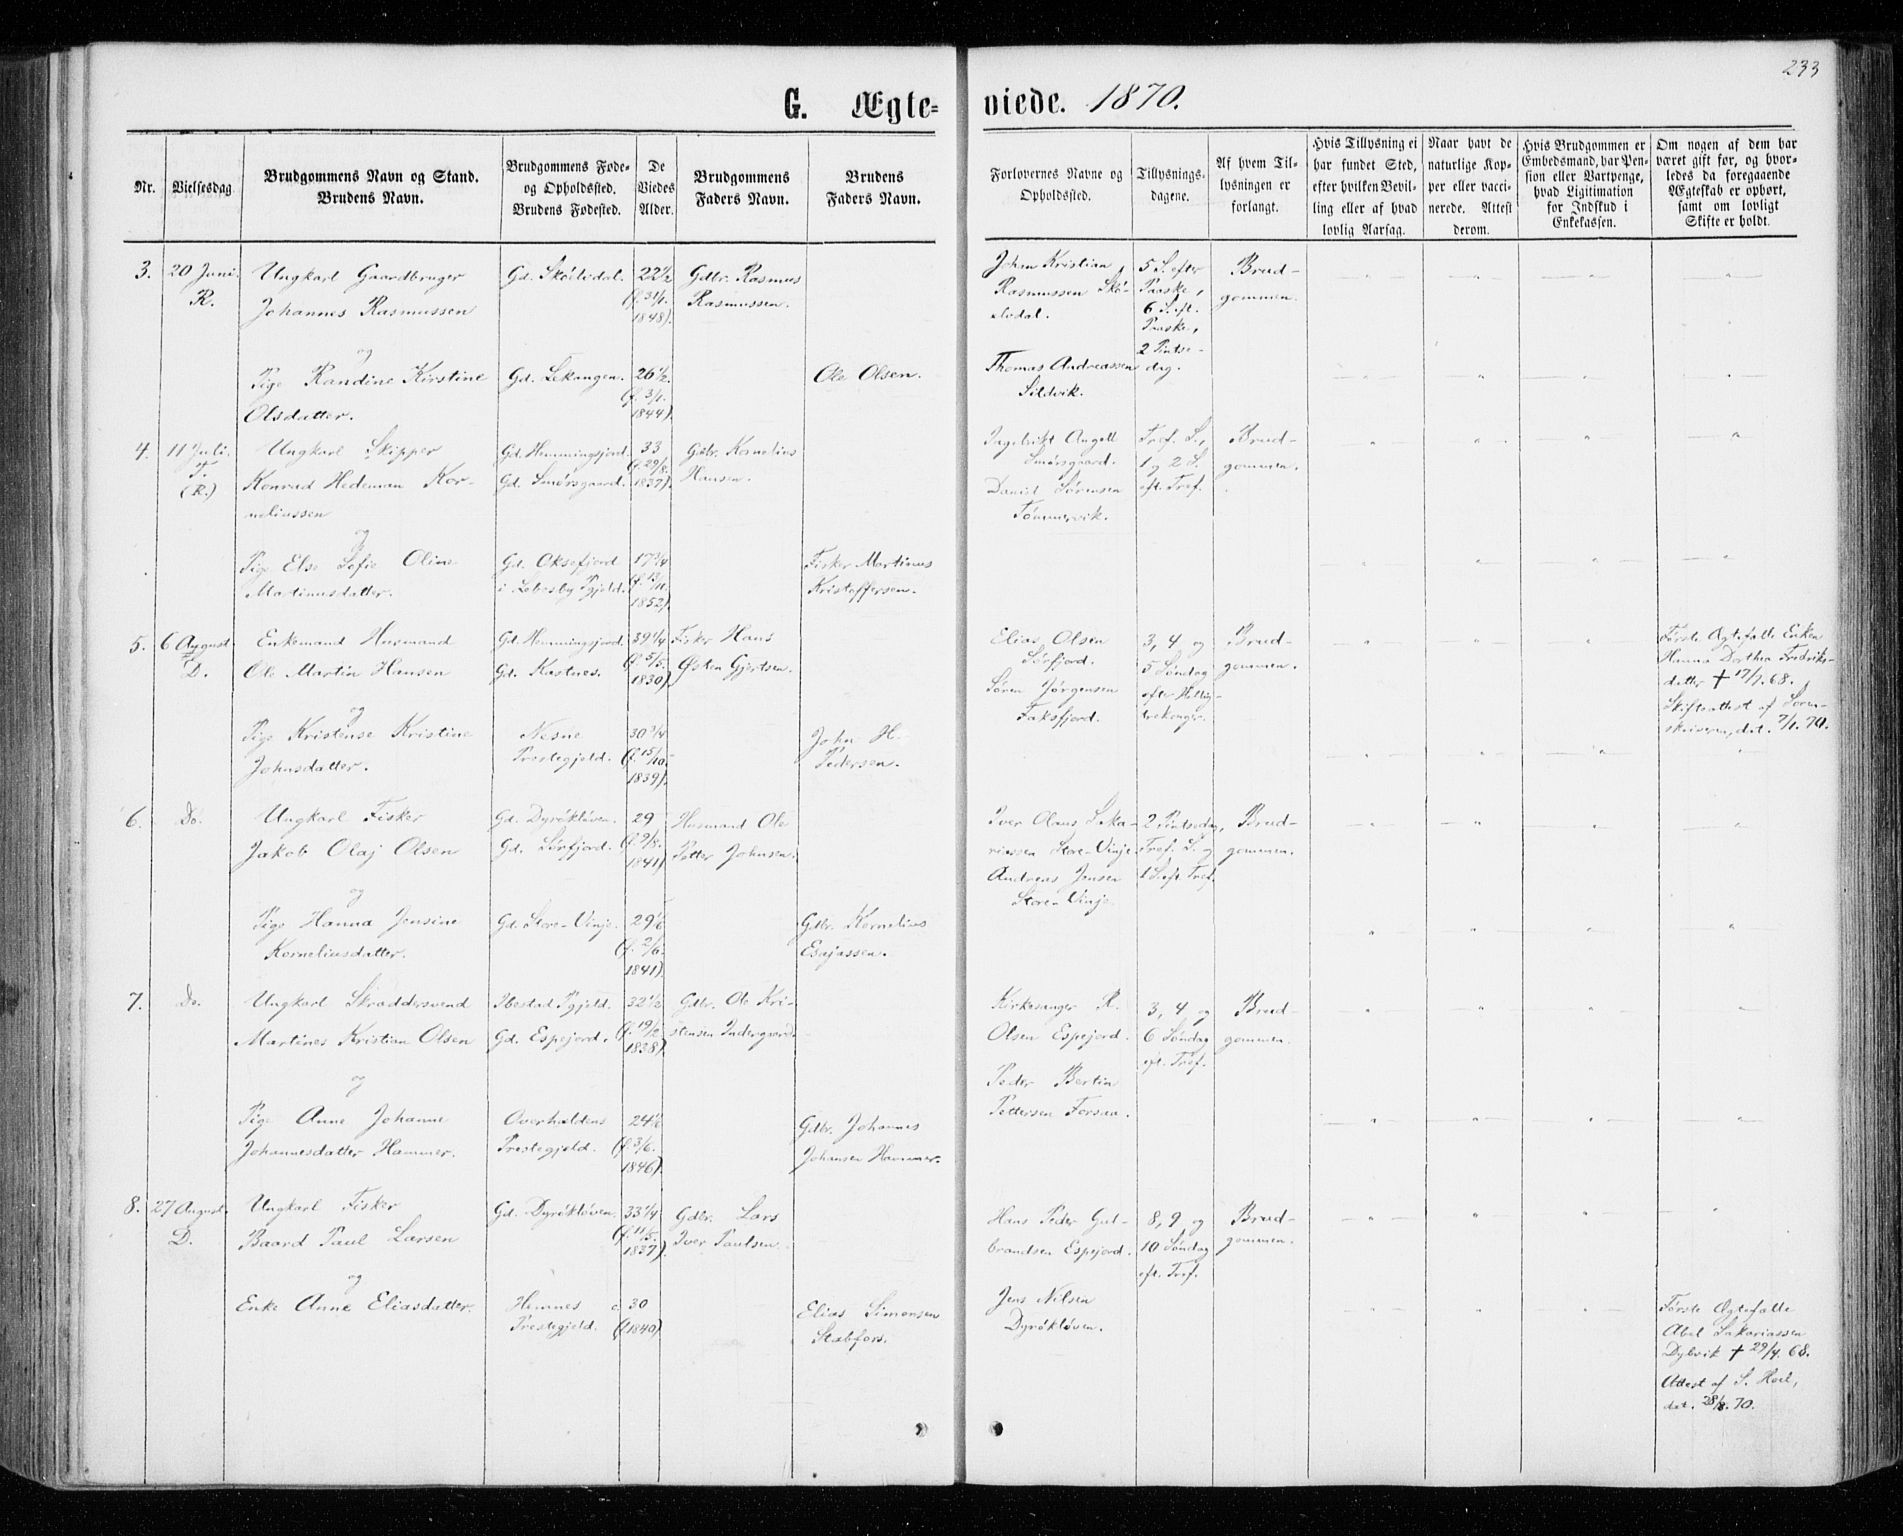 233
G. Ægteviede. 1870.
Nr.
Vielsesdag.
Brudgommens Navn og Stand.
Brudens Navn.
Brudgommens Føde-
og Opholdssted.
Brudens Fødested.
De
Viedes
Alder.
Brudgommens
Faders Navn.
Brudens
Faders Navn.
Forlovernes Navne og
Opholdssted.
Tillysnings-
dagene.
Af hvem Til-
lysningen er
forlangt.
Hvis Tillysning ei
har fundet Sted,
efter hvilken Bevil-
ling eller af hvad
lovlig Aarsag.
Naar havt de
naturlige Kop-
per eller vacci-
nerede. Attest
derom.
Hvis Brudgommen er
Embedsmand, har Pen-
sion eller Vartpenge,
hvad Legitimation
for Indskud i
Enkekassen.
Om nogen af dem har
været gift før, og hvor-
ledes da foregaaende
Ægteskab er ophørt,
samt om lovligt
Skifte er holdt.
3.
20 Juni.
R.
Ungkarl Gaardbruger
Johannes Rasmussen
og
Pige Randine Kirstine
Olsdatter.
Gd. Skøelvdal.
Gd. Lekangen.
22 1/2
(f. 31/1.
1848).
26 1/2.
(f. 3/1.
1844).
Gdbr. Rasmus
Rasmussen.
Ole Olsen.
Johan Kristian
Rasmussen Skø-
elvdal.
Thomas Andreassen
Sildvik.
5 S. efter
Paaske,
6 S. eft.
Paaske,
2 Pintse-
dag.
Brud-
gommen.
4.
11 Juli.
T.
(R.)
Ungkarl Skipper
Konrad Hedeman Kor-
neliussen
og
Pige Else Sofie Oline
Martinusdatter.
Gd. Hemmingsjord.
Gd. Smørsgaard.
Gd. Oksefjord
i Lebesby Pgjeld.
33
(f. 29/8.
1837).
17 3/4
(f. 13/11.
1852).
Gdbr. Kornelius
Hansen.
Fisker Martinus
Kristoffersen.
Ingebrikt Angell
Smørsgaard.
Daniel Sørensen
Tømmervik.
Tref. S.,
1 og 2 S.
eft. Tref.
Brud-
gommen.
5.
6 August
D.
Enkemand Husmand
Ole Martin Hansen
og
Pige Kristense Kristine
Johnsdatter.
Gd. Hemmingsjord.
Gd. Kastnes.
Nesne
Prestegjeld.
39 1/4
(f. 5/5.
1830).
30 3/4
(f. 15/10.
1839).
Fisker Hans
Østen Gjertsen.
John H.
Pedersen.
Elias Olsen
Sørfjord.
Søren Jørgensen
Faksfjord.
3, 4 og
5 Søndag
efter Hellig-
trekonger.
Brud-
gommen.
Første Ægtefælle Enken
Hanna Dorthea Fredriks-
datter † 17/7. 68.
Skifteattest af Soren-
skriveren, dat. 7/1. 70.
6.
Do.
Ungkarl Fisker
Jakob Olaj Olsen
og
Pige Hanna Jensine
Korneliusdatter.
Gd. Dyrøkløven.
Gd. Sørfjord.
Gd. Store-Vinje.
29
(f. 9/8.
1841).
29 1/6
(f. 2/6.
1841).
Husmand Ole
Petter Johnsen.
Gdbr. Kornelius
Esajassen.
Iver Olaus Saka-
riassen Store-Vinje.
Andreas Jensen
Store-Vinje.
2 Pintsedag,
Tref. S. og
1 S. eft. Tref.
Brud-
gommen.
7.
Do.
Ungkarl Skræddersvend
Martines Kristian Olsen
og
Pige Anne Johanne
Johannesdatter Hammer.
Ibestad Pgjeld.
Gd. Espejord.
Overhaldens
Prestegjeld.
32 1/2
(f. 19/2.
1838).
24 1/6
(f. 3/6.
1846).
Gdbr. Ole Kri-
stensen Indergaard.
Gdbr. Johannes
Johansen Hammer.
Kirkesanger R.
Olsen Espejord.
Peder Bertin
Pettersen Forsaa.
3, 4 og
6 Søndag
eft. Tref.
Brud-
gommen.
8.
27 August.
D.
Ungkarl Fisker
Baard Paul Larsen
og
Enke Anne Eliasdatter.
Gd. Dyrøkløven.
Hemnes
Prestegjeld.
33 1/4
(f. 11/5.
1837).
c. 30
(f. 1840).
Gdbr. Lars
Iver Paulsen.
Elias Simonsen
Stabfors.
Hans Peder Gul-
brandsen Espejord.
Jens Nilsen
Dyrøkløven.
8, 9 og
10 Søndag
eft. Tref.
Brud-
gommen.
Første Ægtefælle
Abel Sakariassen
Dybvik † 29/4. 68.
Attest af S. Heil,
dat. 28/8. 70.